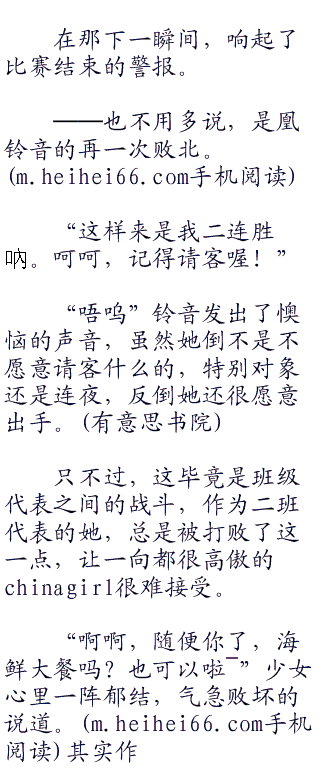 在那下一瞬间，响起了
比赛结束的警报。
——也不用多说，是凰
铃音的再一次败北。
(m.heihei66.com手机阅读)
“这样来是我二连胜
吶。呵呵，记得请客喔！”
“唔呜”铃音发出了懊
恼的声音，虽然她倒不是不
愿意请客什么的，特别对象
还是连夜，反倒她还很愿意
出手。(有意思书院)
只不过，这毕竟是班级
代表之间的战斗，作为二班
代表的她，总是被打败了这
一点，让一向都很高傲的
chinagirl很难接受。
“啊啊，随便你了，海
鲜大餐吗？也可以啦¯”少女
心里一阵郁结，气急败坏的
说道。(m.heihei66.com手机
阅读)其实作